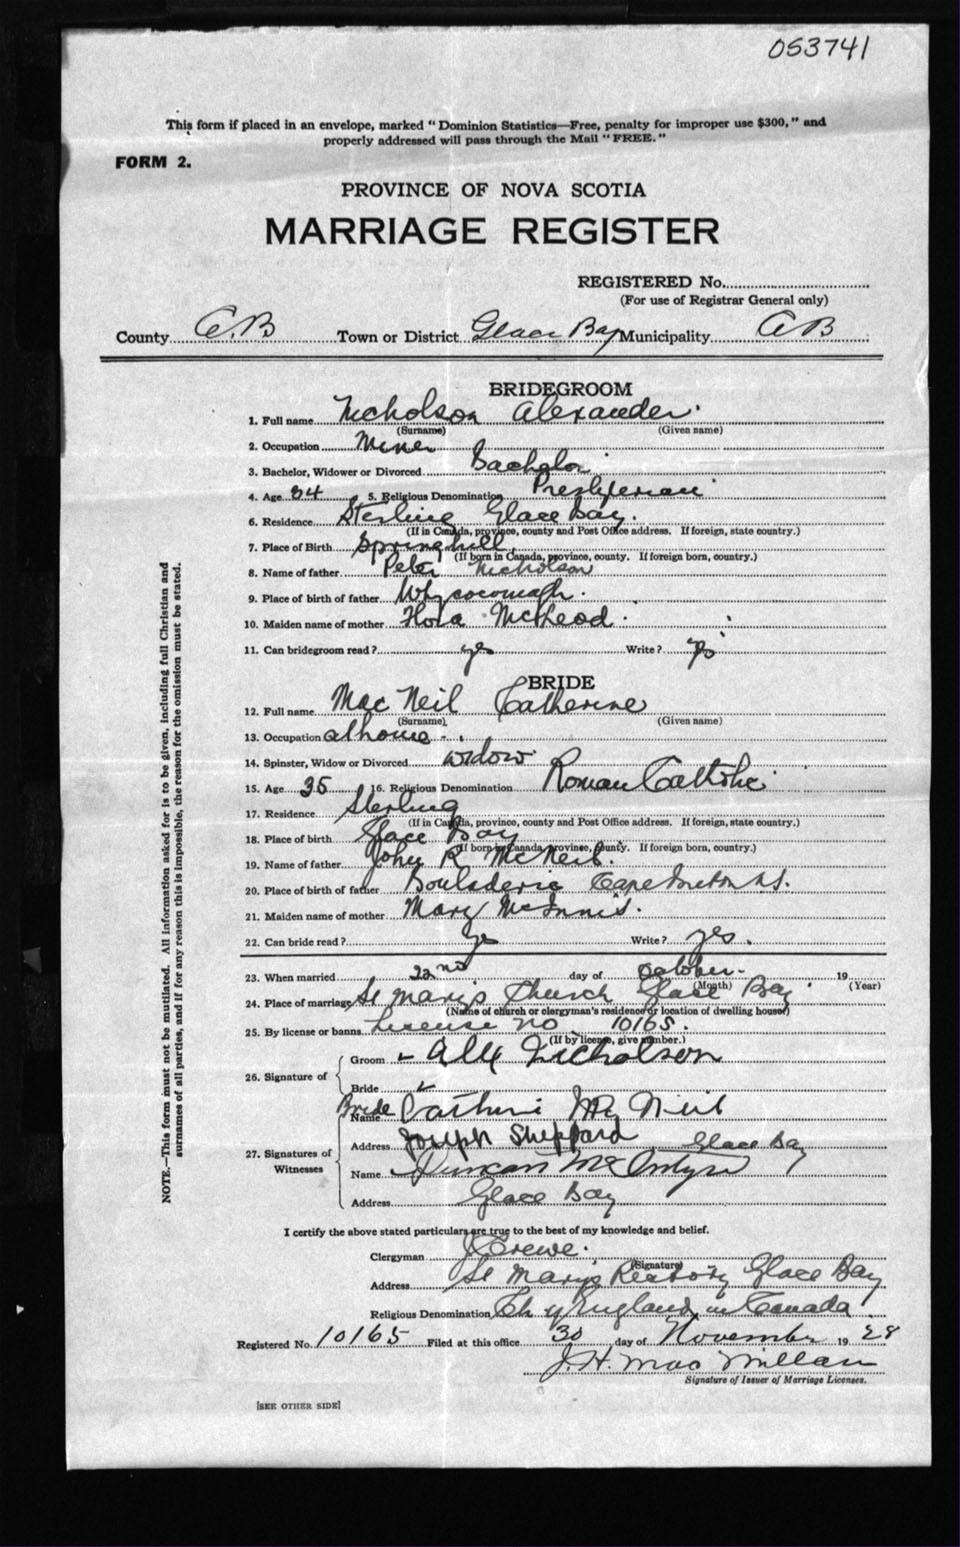 053741
This form if placed in an envelope, marked "Dominion Statistics—Free, penalty for improper use $300," and
properly addressed will pass through the Mail "FREE."
FORM 2.
PROVINCE OF NOVA SCOTIA
MARRIAGE REGISTER
REGISTERED No.
(For use of Registrar General only)
County C.B Town or District Glace Bay Municipality C B
BRIDEGROOM
1. Full name Nicholson Alexander
(Surname) (Given name)
2. Occupation Miner
3. Bachelor, Widower or Divorced Bachelor
4. Age 34 5. Religious Denomination Presbyterian
6. Residence Sterling Glace Bay.
(If in Canada, province, county and Post Office address. If foreign, state country.)
7. Place of Birth Springhill
(If born in Canada, province, county. If foreign born, country.)
8. Name of father Peter Nicholson
9. Place of birth of father Whycocomagh.
10. Maiden name of mother Flora McLeod.
11. Can bridegroom read? yes Write? yes
BRIDE
12. Full name Mac Neil Catherine
(Surname) (Given name)
13. Occupation at home
14. Spinster, Widow or Divorced widow
15. Age 35 16. Religious Denomination Roman Catholic
17. Residence Sterling
(If in Canada, province, county and Post Office address. If foreign, state country.)
18. Place of birth Glace Bay
(If born in Canada, province, county. If foreign born, country.)
19. Name of father John R McNeil.
20. Place of birth of father Bouladerie Cape Breton N.S.
21. Maiden name of mother Mary McInnis.
22. Can bride read? yes Write? yes.
23. When married 22nd day of October 19
(Month) (Year)
24. Place of marriage St Mary's Church Glace Bay
(Name of church or clergyman's residence or location of dwelling house)
25. By license or banns License no 10165.
(If by license, give number.)
26. Signature of Groom Alex Nicholson
Bride
Bride
27. Signatures of Witnesses Name Catherine Mc Neil
Address Joseph Sheppard Glace Bay
Name Duncan McIntyre
Address Glace Bay
I certify the above stated particulars are true to the best of my knowledge and belief.
Clergyman Crewe.
(Signature)
Address St Mary's Rectory Glace Bay
Religious Denomination Ch of England in Canada
Registered No. 10165 Filed at this office 30 day of November 19 28
J. H. Mac Millan
Signature of Issuer of Marriage Licenses.
[SEE OTHER SIDE]
NOTE.—This form must not be mutilated. All information asked for is to be given, including full Christian and
surnames of all parties, and if for any reason this is impossible, the reason for the omission must be stated.